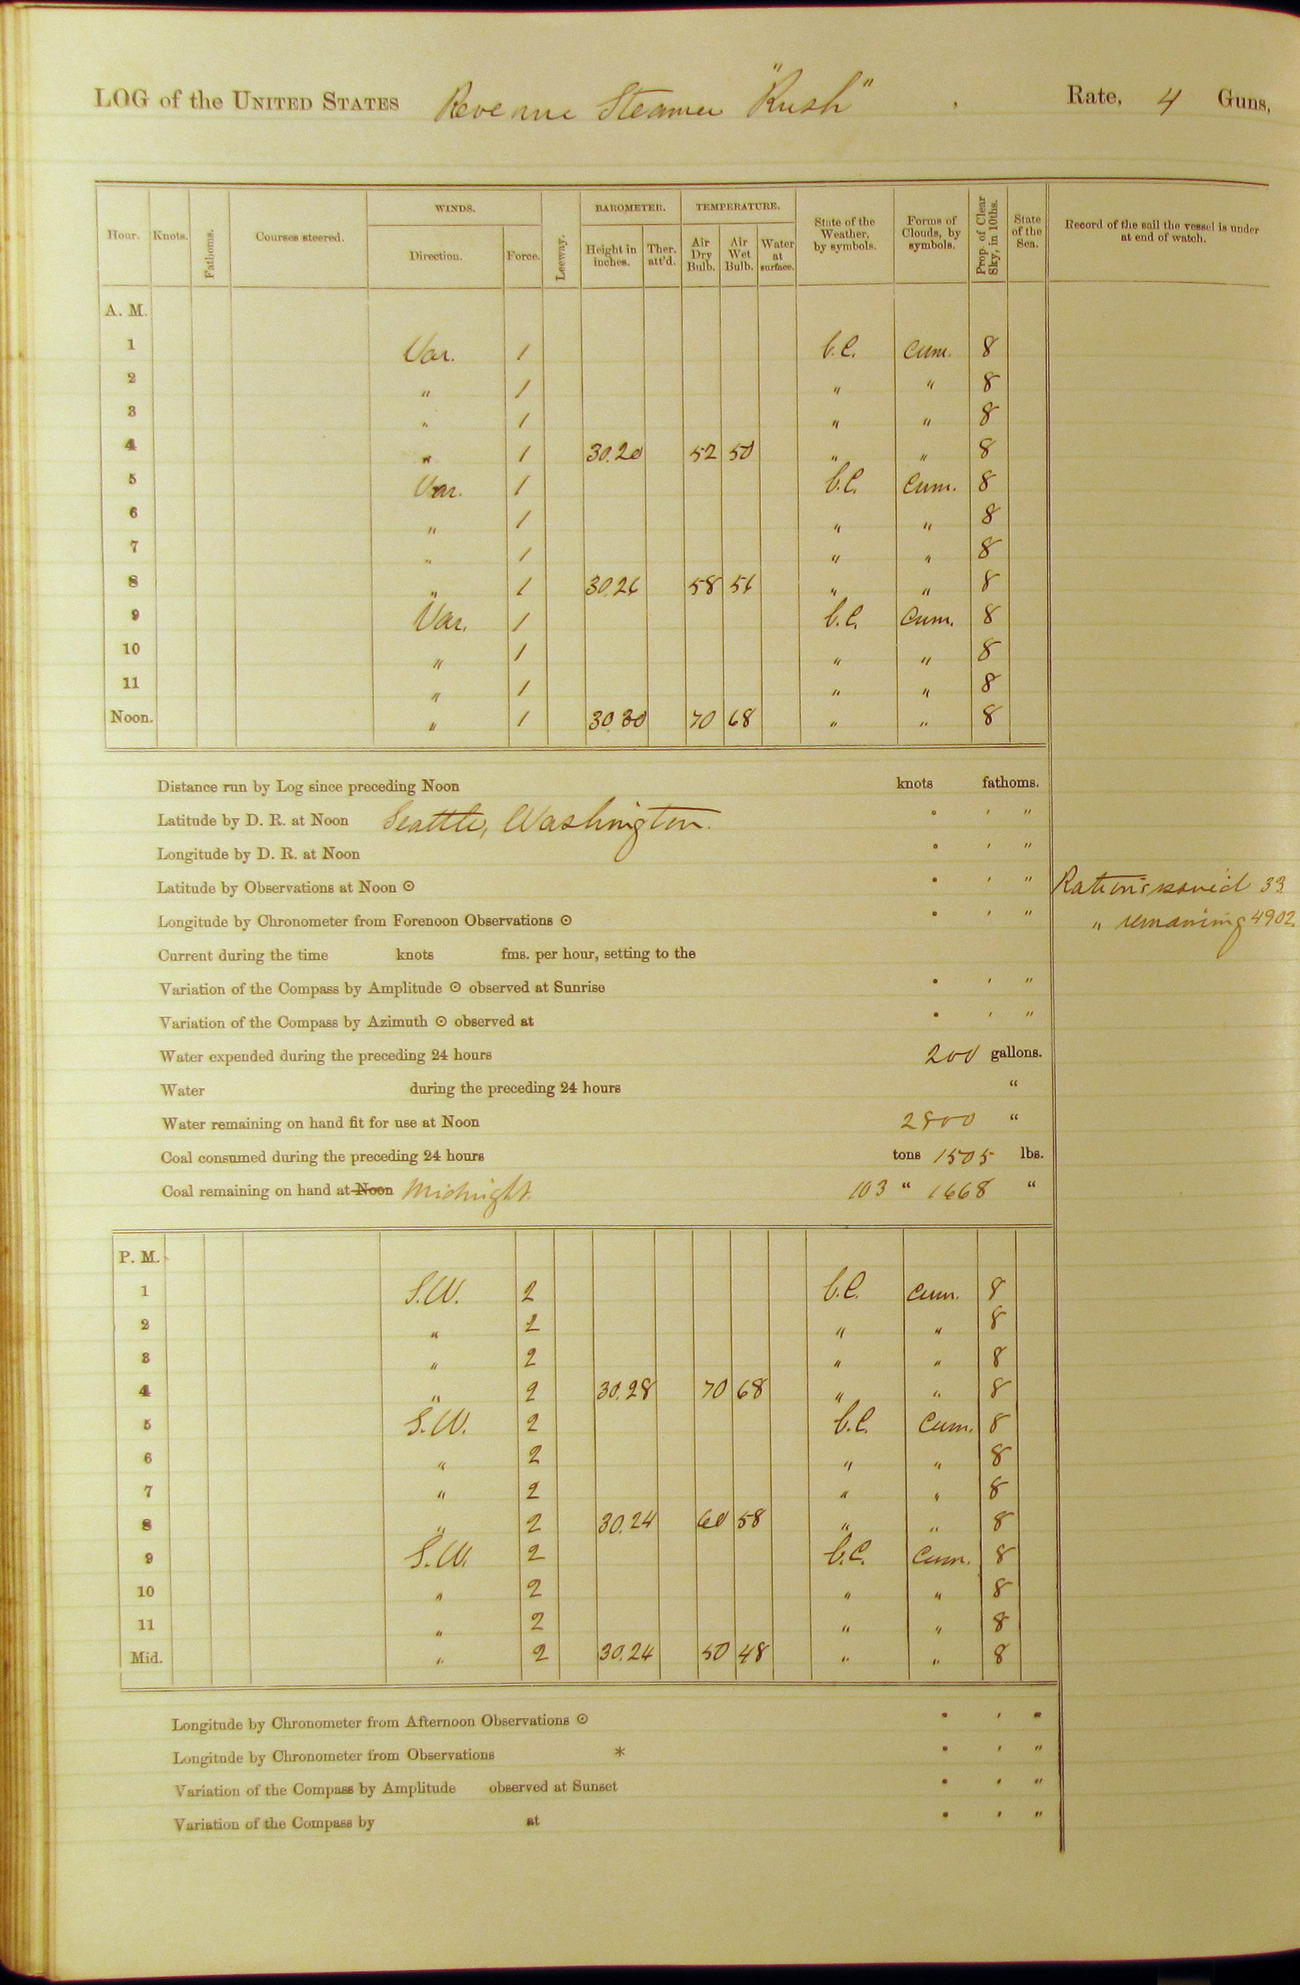 LOG of the UNITED STATES Revenue Steamer "Rush", Rate, 4 Guns,
Hour. Knots. Fathoms. Courses steered. WINDS. Direction. Force. Leeway. BAROMETER. Height in inches. Ther. att'd. TEMPERATURE. Air Dry Bulb. Air Wet Bulb. Water at surface. State of the Weather, by symbols. Forms of Clouds, by symbols. Prop. of Clear Sky, in 10ths. State of the Sea. Record of the sail the vessel is under at end of watch.
A. M.
1 Var. 1 b.c. Cum. 8
2 " 1 " " 8
3 " 1 " " 8
4 " 1 30.20 52 50 " " 8
5 Var. 1 b.c. Cum. 8
6 " 1 " " 8
7 " 1 " " 8
8 " 1 30.26 58 56 " " 8
9 Var. 1 b.c. Cum. 8
10 " 1 " " 8
11 " 1 " " 8
Noon. " 1 30.30 70 68 " " 8
Distance run by Log since preceding Noon knots fathoms.
Latitude by D. R. at Noon Seattle, Washington. ° ' "
Longitude by D. R. at Noon ° ' "
Latitude by Observations at Noon ⊙ ° ' " Rations issued 33
Longitude by Chronometer from Forenoon Observations ⊙ ° ' " " remaining 4902
Current during the time knots fms. per hour, setting to the
Variation of the Compass by Amplitude ⊙ observed at Sunrise ° ' "
Variation of the Compass by Azimuth ⊙ observed at ° ' "
Water expended during the preceding 24 hours 200 gallons.
Water during the preceding 24 hours "
Water remaining on hand fit for use at Noon 2800 "
Coal consumed during the preceding 24 hours tons 1505 lbs.
Coal remaining on hand at Noon Midnight. 103 " 1668 "
P. M.
1 S.W. 2 b.c. Cum. 8
2 " 2 " " 8
3 " 2 " " 8
4 " 2 30.28 70 68 " " 8
5 S.W. 2 b.c. Cum. 8
6 " 2 " " 8
7 " 2 " " 8
8 " 2 30.24 60 58 " " 8
9 S.W. 2 b.c. Cum. 8
10 " 2 " " 8
11 " 2 " " 8
Mid. " 2 30.24 50 48 " " 8
Longitude by Chronometer from Afternoon Observations ⊙ ° ' "
Longitude by Chronometer from Observations * ° ' "
Variation of the Compass by Amplitude observed at Sunset ° ' "
Variation of the Compass by at ° ' "